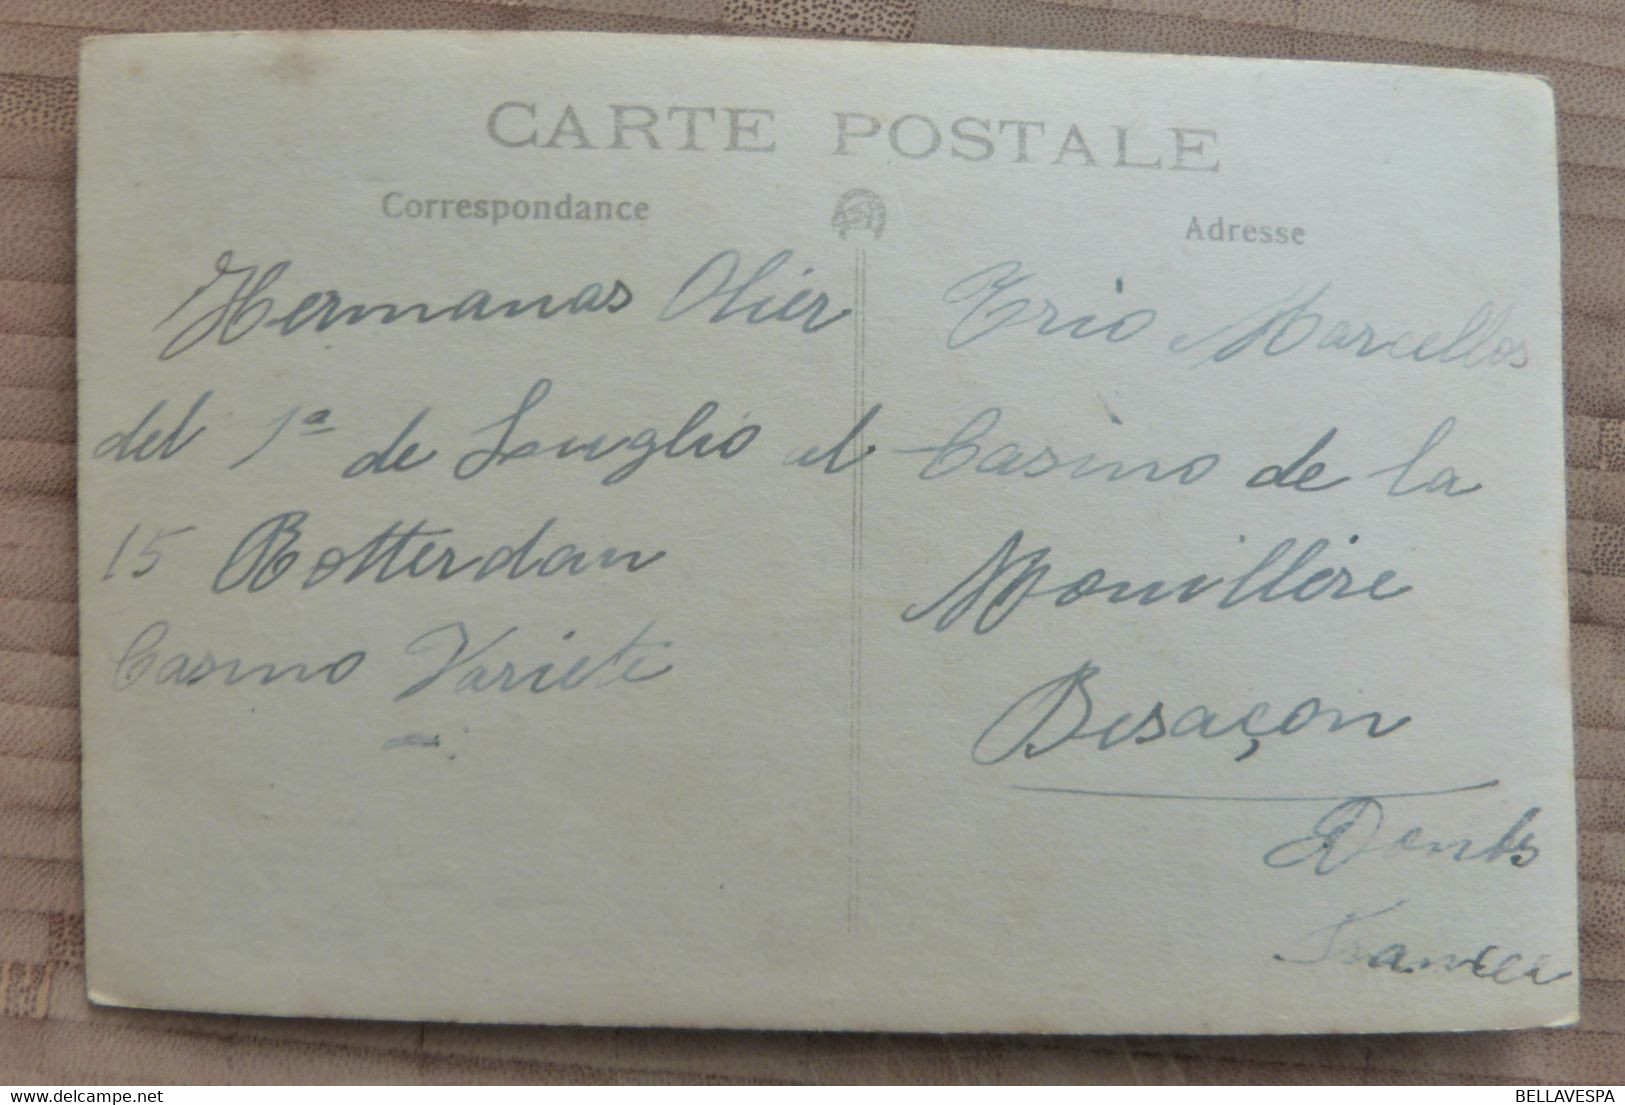 CARTE POSTALE
Correspondance
Adresse
Hermanas Olier
del 1ª de Luuglio al
15 Rotterdan
Casino Varieté
Trio Marcellos
Casino de la
Mouillère
Besaçon
Doubs
France
BELLAVESPA